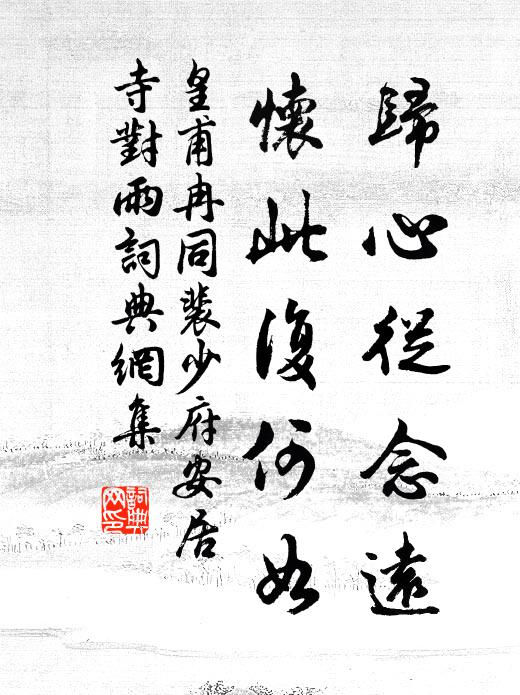 歸心從念遠
懷此復何如
皇甫冉同裴少府安居
寺對雨詞典網集
詞典
网印